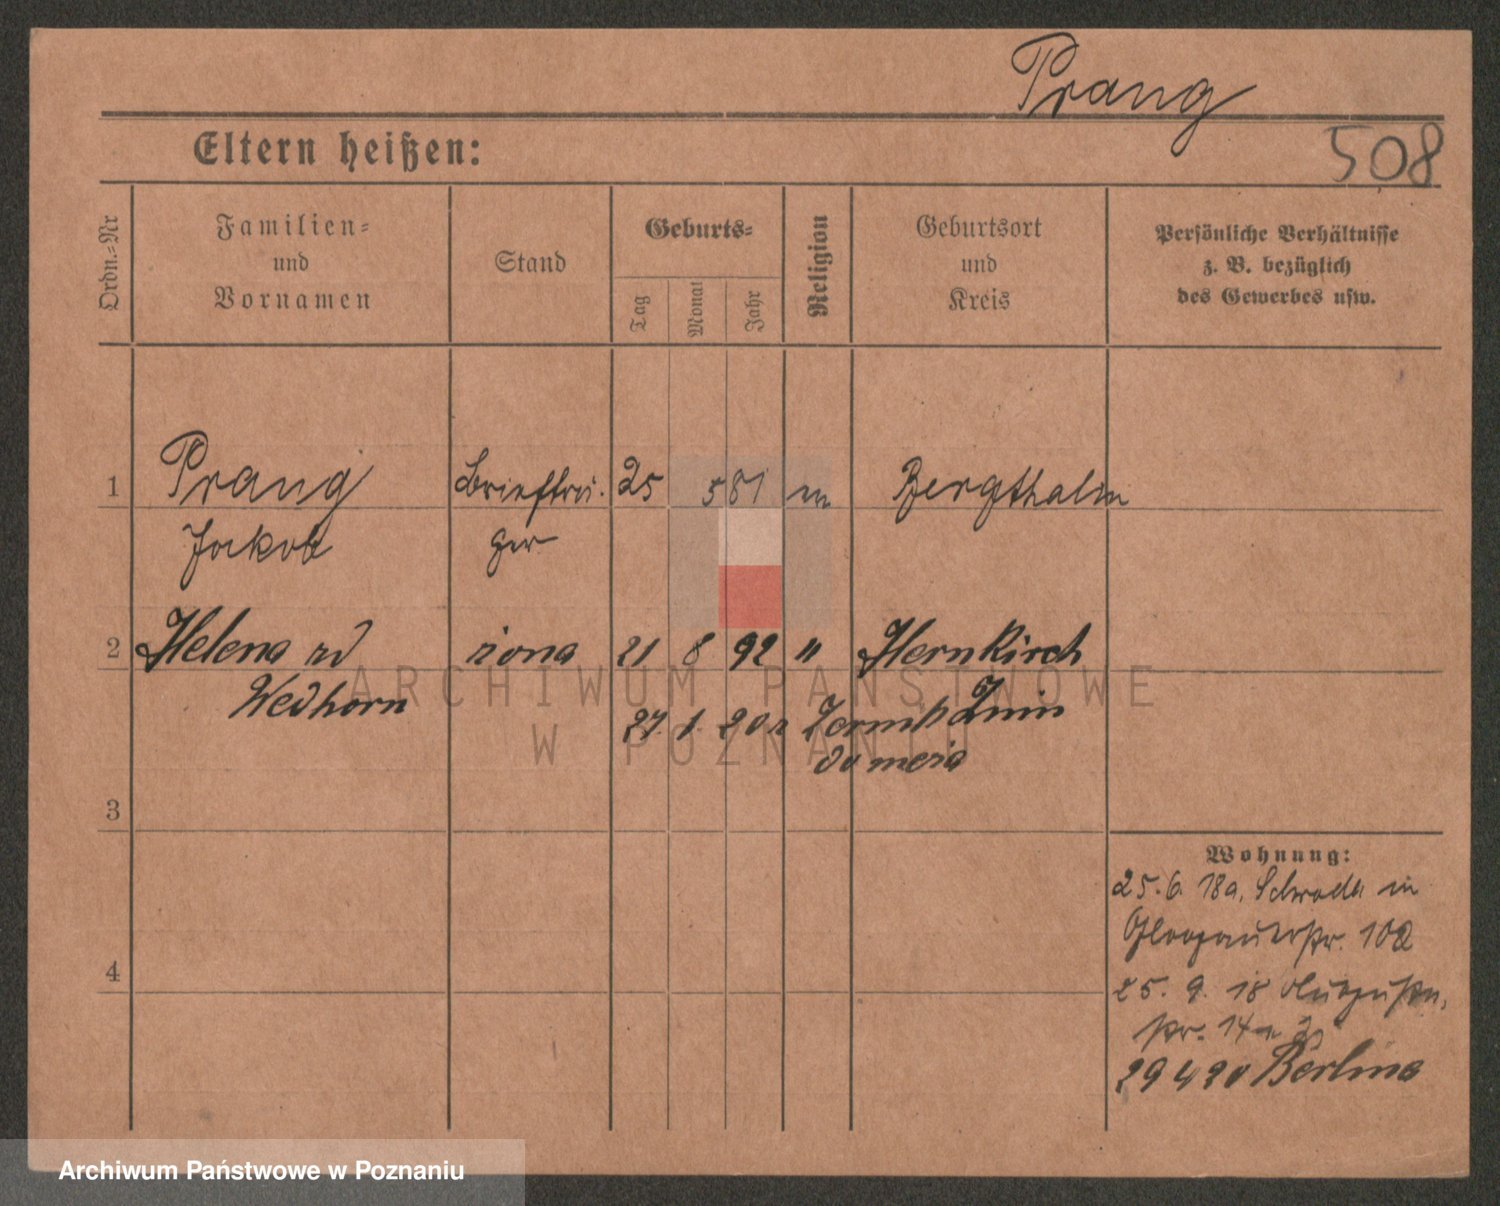 Prang
508
Eltern heißen:
Ordn.-Nr
Familien-
und
Vornamen
Stand
Geburts-
Tag
Monat
Jahr
Religion
Geburtsort
und
Kreis
Persönliche Verhältnisse
z. B. bezüglich
des Gewerbes usw.
1 Prang Briefträ. 25 5 81 Bergthalin
Jackob ger
2 Helena żona 21 8 92 " Hernkirch
Wedhorn
27. 1. 20 Żnin
3
Wohnung:
25. 6. 18 a. Schroda in
Glogauerstr. 102
25. 9. 18
str. 14
4
29 4 20 Berlina
ARCHIWUM PAŃSTWOWE
W POZNANIU
Archiwum Państwowe w Poznaniu